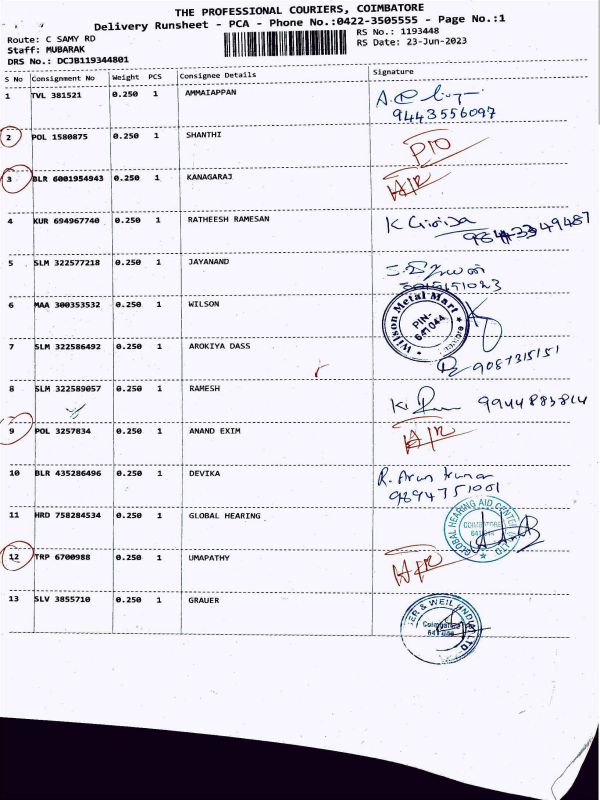 THE PROFESSIONAL COURIERS, COIMBATORE
Delivery Runsheet - PCA - Phone No.:0422-3505555 - Page No.:1
Route: C SAMY RD
RS No.: 1193448
Staff: MUBARAK
RS Date: 23-Jun-2023
DRS No.: DCJB119344801
S No Consignment No Weight PCS Consignee Details Signature
1 TVL 381521 0.250 1 AMMAIAPPAN
9443556097
2 POL 1580875 0.250 1 SHANTHI
3 BLR 6001954943 0.250 1 KANAGARAJ
4 KUR 694967740 0.250 1 RATHEESH RAMESAN
5 SLM 322577218 0.250 1 JAYANAND
6 MAA 300353532 0.250 1 WILSON
Wilson Metal Mart
PIN-
641044
7 SLM 322586492 0.250 1 AROKIYA DASS
9087315151
8 SLM 322589057 0.250 1 RAMESH
9944883814
9 POL 3257834 0.250 1 ANAND EXIM
10 BLR 435286496 0.250 1 DEVIKA
R. Arun kumar
9894751001
11 HRD 758284534 0.250 1 GLOBAL HEARING
GLOBAL HEARING AID CENTRE
COIMBATORE
12 TRP 6700988 0.250 1 UMAPATHY
13 SLV 3855710 0.250 1 GRAUER
& WEIL (INDIA) LTD
Coimbatore